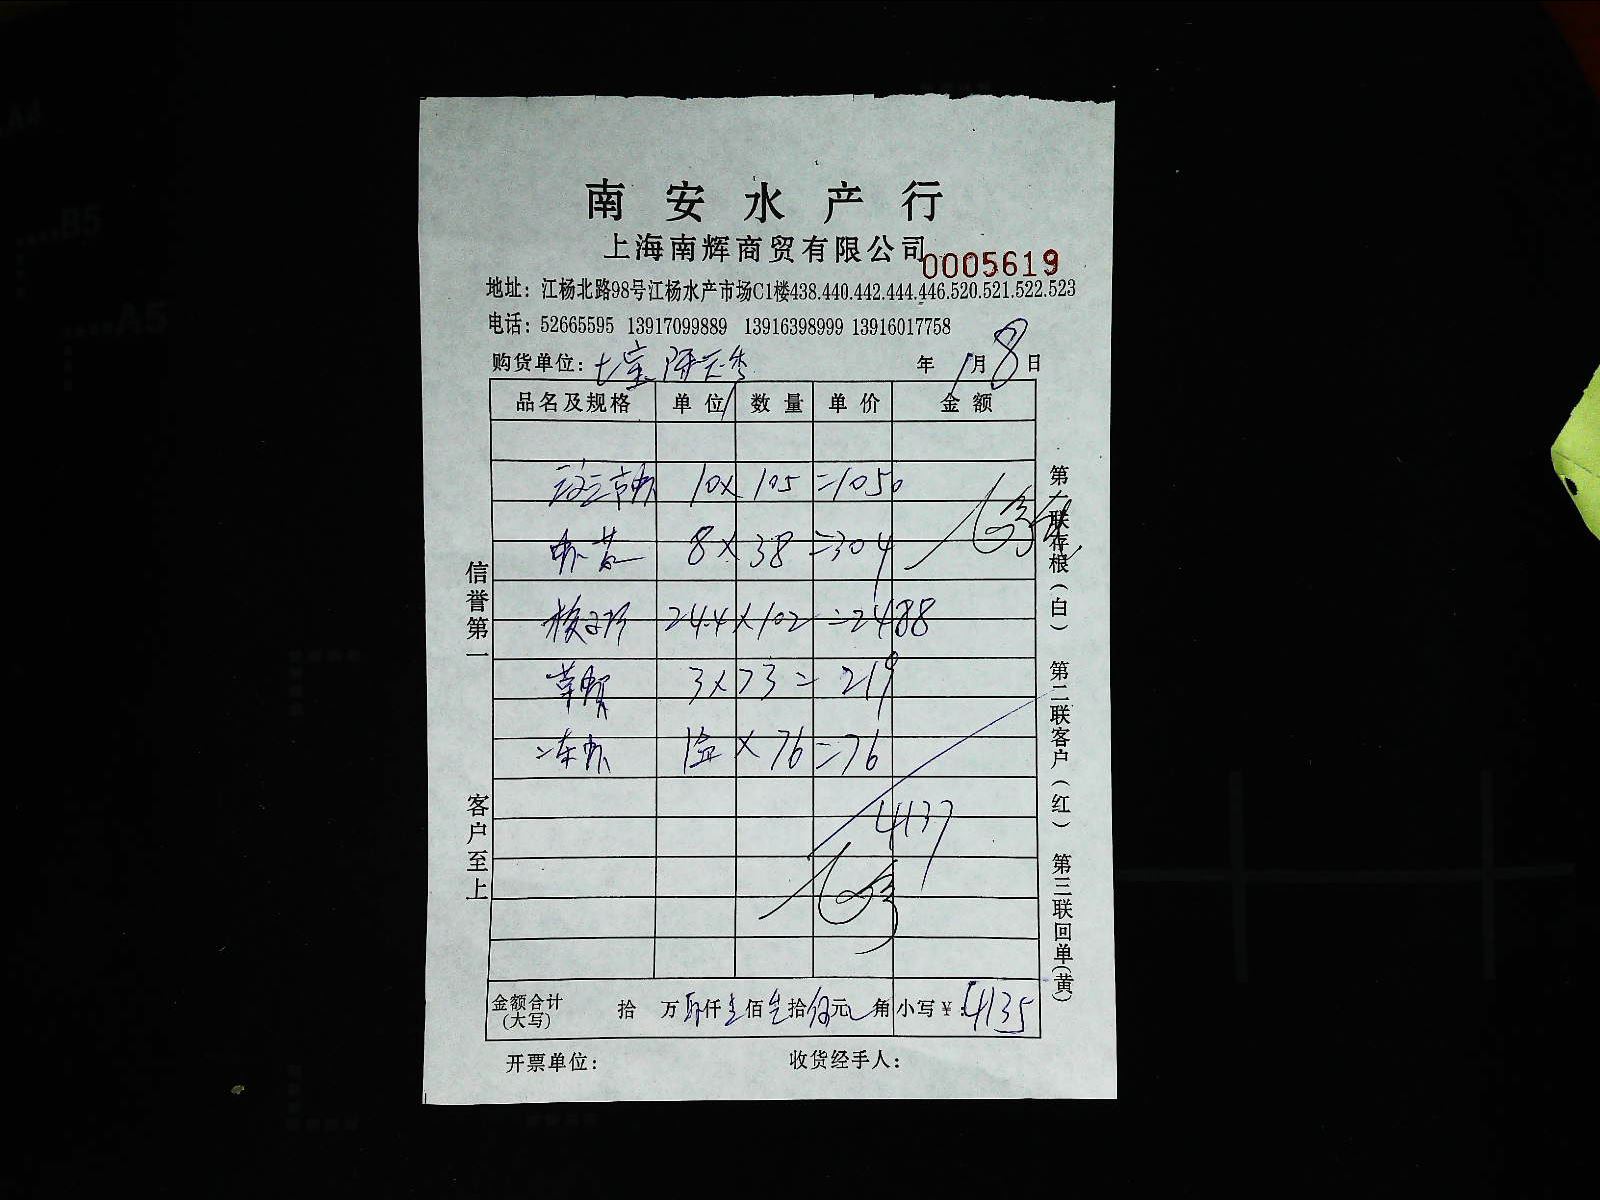 南安水产行
上海南辉商贸有限公司
0005619
地址：江杨北路98号江杨水产市场C1楼438.440.442.444.446.520.521.522.523
电话：52665595 13917099889 13916398999 13916017758
购货单位：七宝 年 1月8日
品名及规格 单位 数量 单价 金额
10 x 105 = 1050
8 x 38 = 304
24.4 x 102 = 2488
3 x 73 = 219
1盒 x 76 = 76
4137
金额合计(大写) 拾 万肆仟壹佰 拾伍元 角 小写￥：4135
开票单位： 收货经手人：
信誉第一 客户至上
第一联存根(白) 第二联客户(红) 第三联回单(黄)
A4
B5
A5